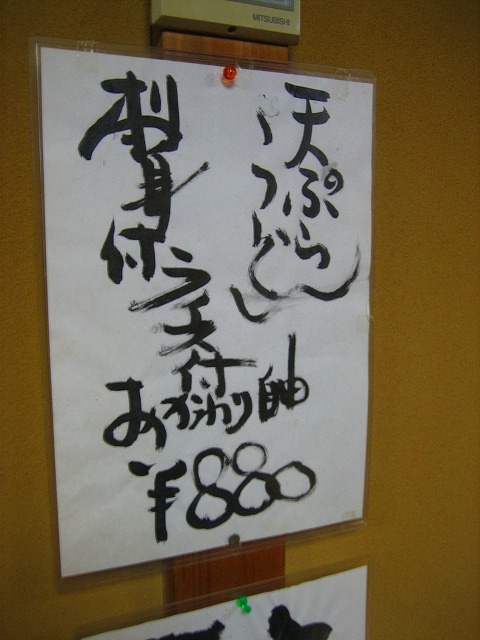 MITSUBISHI
天ぷら
うどん
刺身付
ライス付
おかわり自由
¥880